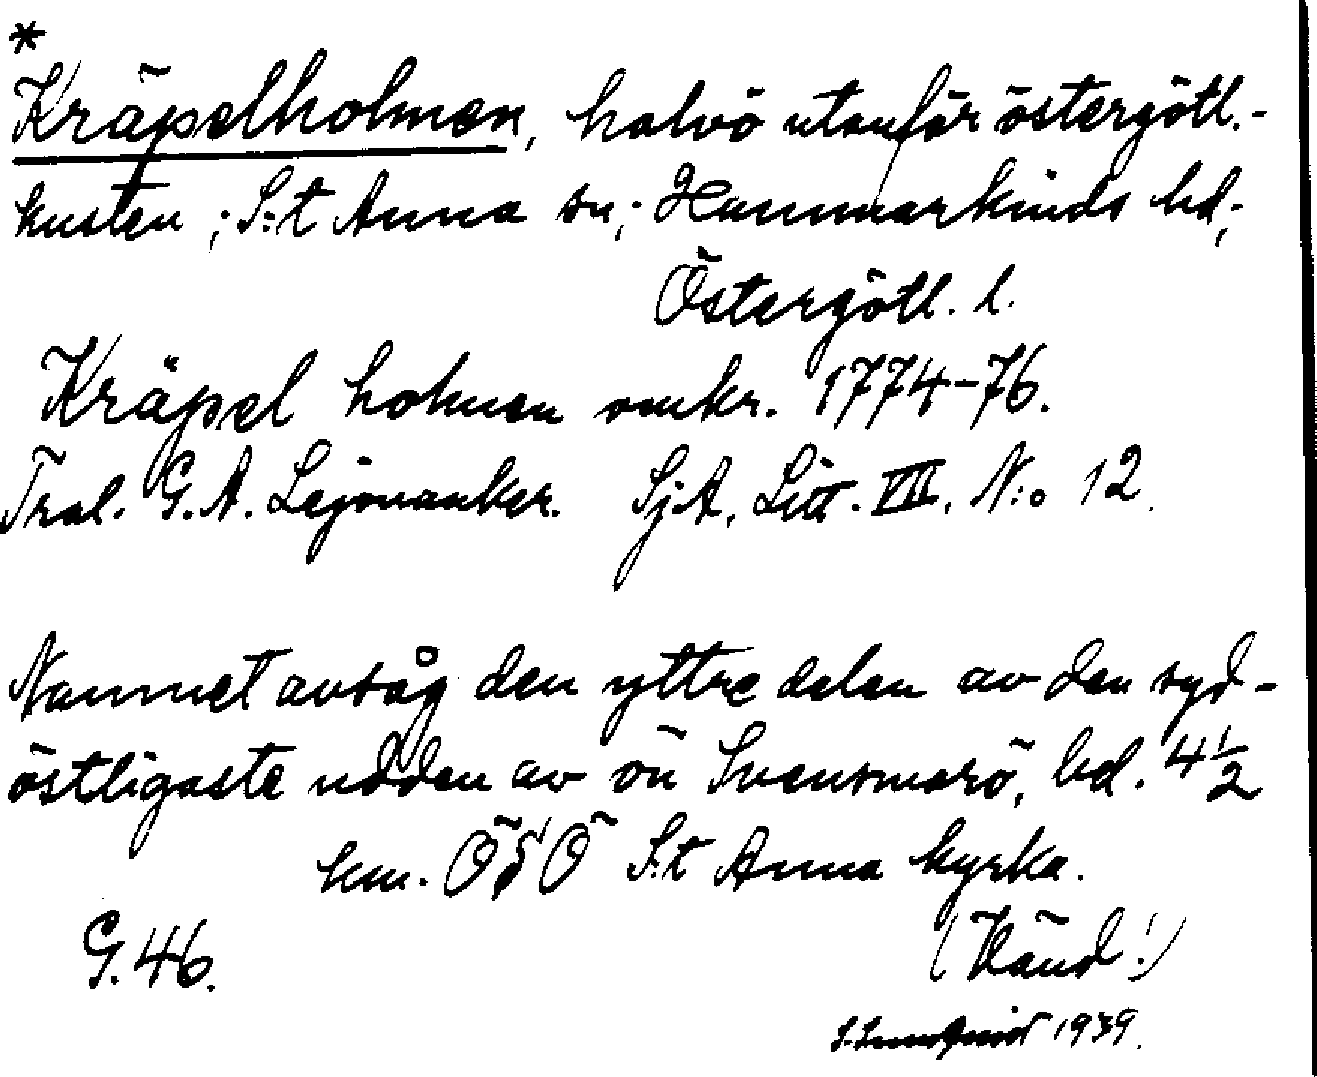 *
Kräpelholmen, halvö utanför östergötl.-
kusten; S:t Anna sn; Hammarkinds hd;
Östergötl. l.
Kräpel holmen omkr. 1774-76.
Tral. G. A. Lejonanker. SjA, Litt. VII. N:o 12.
Namnet avsåg den yttre delen av den syd-
östligaste udden av ön Svensmarö, bel. 4 1/2
km. ÖSÖ S:t Anna kyrka.
G. 46.
(Vänd!)
1939.